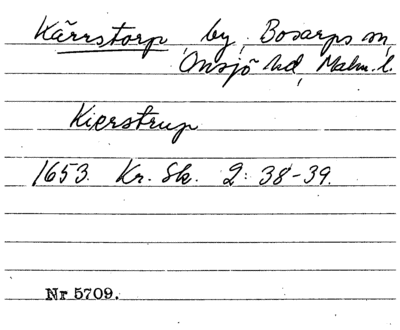 Kärrstorp by, Bosarps sn,
Onsjö hd, Malm. l.
Kierstrup
1653. Kr. Sk. 2: 38-39.
Nr 5709.